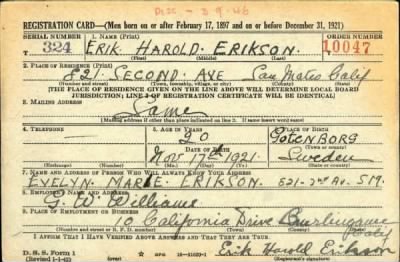 DISC - 3 9 46
REGISTRATION CARD—(Men born on or after February 17, 1897 and on or before December 31, 1921)
SERIAL NUMBER 1. NAME (Print) ORDER NUMBER
324 ERIK HAROLD ERIKSON. 10047
(First) (Middle) (Last)
2. PLACE OF RESIDENCE (Print)
821 SECOND AVE San Mateo Calif
(Number and street) (Town, township, village, or city) (County) (State)
[THE PLACE OF RESIDENCE GIVEN ON THE LINE ABOVE WILL DETERMINE LOCAL BOARD
JURISDICTION; LINE 2 OF REGISTRATION CERTIFICATE WILL BE IDENTICAL]
3. MAILING ADDRESS
Same
(Mailing address if other than place indicated on line 2. If same insert word same)
4. TELEPHONE 5. AGE IN YEARS 6. PLACE OF BIRTH
20 GOTENBORG
DATE OF BIRTH (Town or county)
Nov 17th 1921. Sweden
(Exchange) (Number) (Mo.) (Day) (Yr.) (State or country)
7. NAME AND ADDRESS OF PERSON WHO WILL ALWAYS KNOW YOUR ADDRESS
EVELYN MARIE ERIKSON. 821-2nd Av. S.M.
8. EMPLOYER'S NAME AND ADDRESS
G. W. Williams
9. PLACE OF EMPLOYMENT OR BUSINESS
10 California Drive Burlingame Calif
(Number and street or R. F. D. number) (Town) (County) (State)
I AFFIRM THAT I HAVE VERIFIED ABOVE ANSWERS AND THAT THEY ARE TRUE.
D. S. S. Form 1
(Revised 1-1-42) (over) 16-21630-1 Erik Harold Erikson